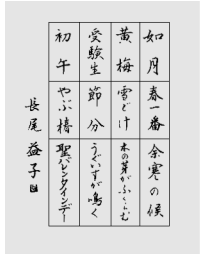 如月 春一番 余寒の候
黄梅 雪どけ 木の芽がふくらむ
受験生 節分 うぐいすが鳴く
初午 やぶ椿 聖バレンタインデー
長尾益子